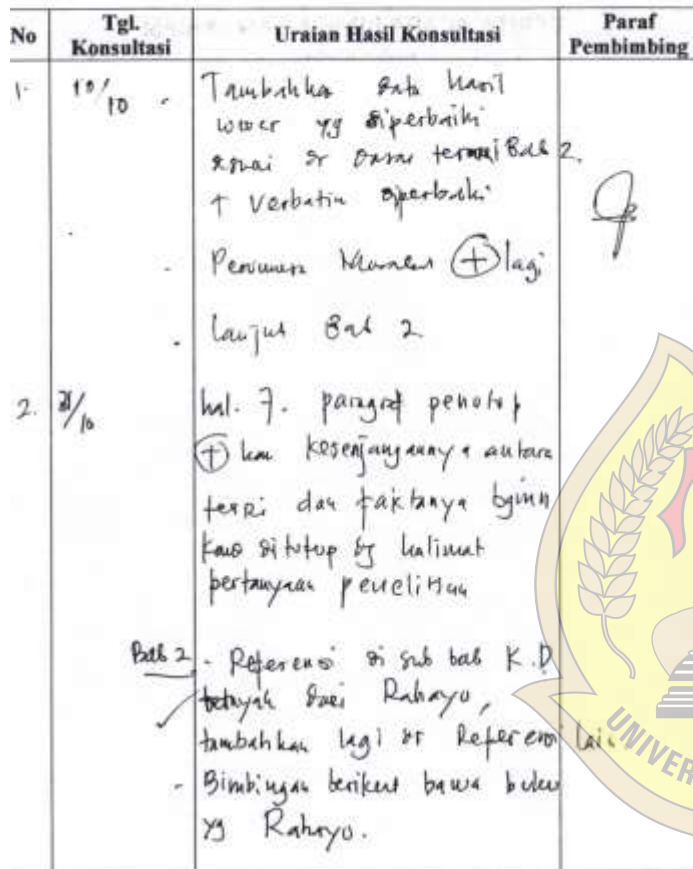 No
Tgl. Konsultasi
Uraian Hasil Konsultasi
Paraf Pembimbing
1. 10/10
Tambahkan data hasil
wwcr yg diperbaiki
sesuai dr dasar teori Bab 2.
+ Verbatim diperbaiki
⊕ lagi
Lanjut Bab 2
2. 31/10
hal. 7. paragraf penutup
⊕ kan kesenjangannya antara
teori dan faktanya bgmn
ditutup dg kalimat
pertanyaan penelitian
Bab 2 - Referensi di sub bab K.D
dari Rahayu,
tambahkan lagi dr Referensi lain
- Bimbingan berikut bawa buku
yg Rahayu.
UNIVER